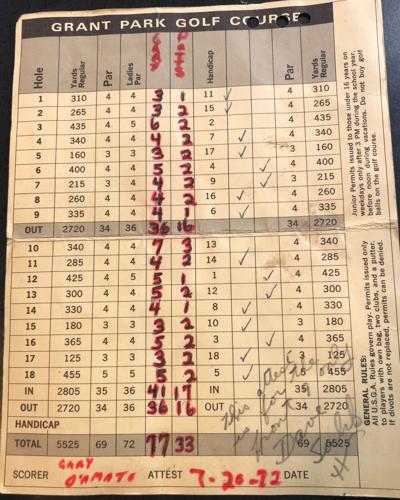 GRANT PARK GOLF COURSE
Hole Yards Regular Par Ladies Par Handicap Par Yards Regular
1 310 4 4 3 1 11 4 310
2 265 4 4 3 2 15 4 265
3 435 4 5 6 2 2 4 435
4 340 4 4 4 2 7 4 340
5 160 3 3 3 2 17 3 160
6 400 4 4 5 2 4 4 400
7 215 3 4 4 2 9 3 215
8 260 4 4 4 2 16 4 260
9 335 4 4 4 1 6 4 335
OUT 2720 34 36 36 16 34 2720
10 340 4 4 7 3 13 4 340
11 285 4 4 4 2 14 4 285
12 425 4 5 5 1 1 4 425
13 300 4 4 5 2 12 4 300
14 330 4 4 4 1 8 4 330
15 180 3 3 3 2 10 3 180
16 365 4 4 5 2 3 4 365
17 125 3 3 3 2 18 3 125
18 455 5 5 5 2 5 455
IN 2805 35 36 41 17 IN 35 2805
OUT 2720 34 36 36 16 OUT 34 2720
HANDICAP
TOTAL 5525 69 72 77 33 69 5525
SCORER GARY D'AMATO ATTEST 7-20-72 DATE
Junior Permits issued to those under 16 years on
weekdays only after 3 PM during the school year,
before noon during vacations. Do not buy golf
balls on the golf course.
GENERAL RULES:
All U.S.G.A. Rules govern play. Permits issued only
to players with own bag, two clubs, and a putter.
If divots are not replaced, permits can be denied.
is for the
front
Dave